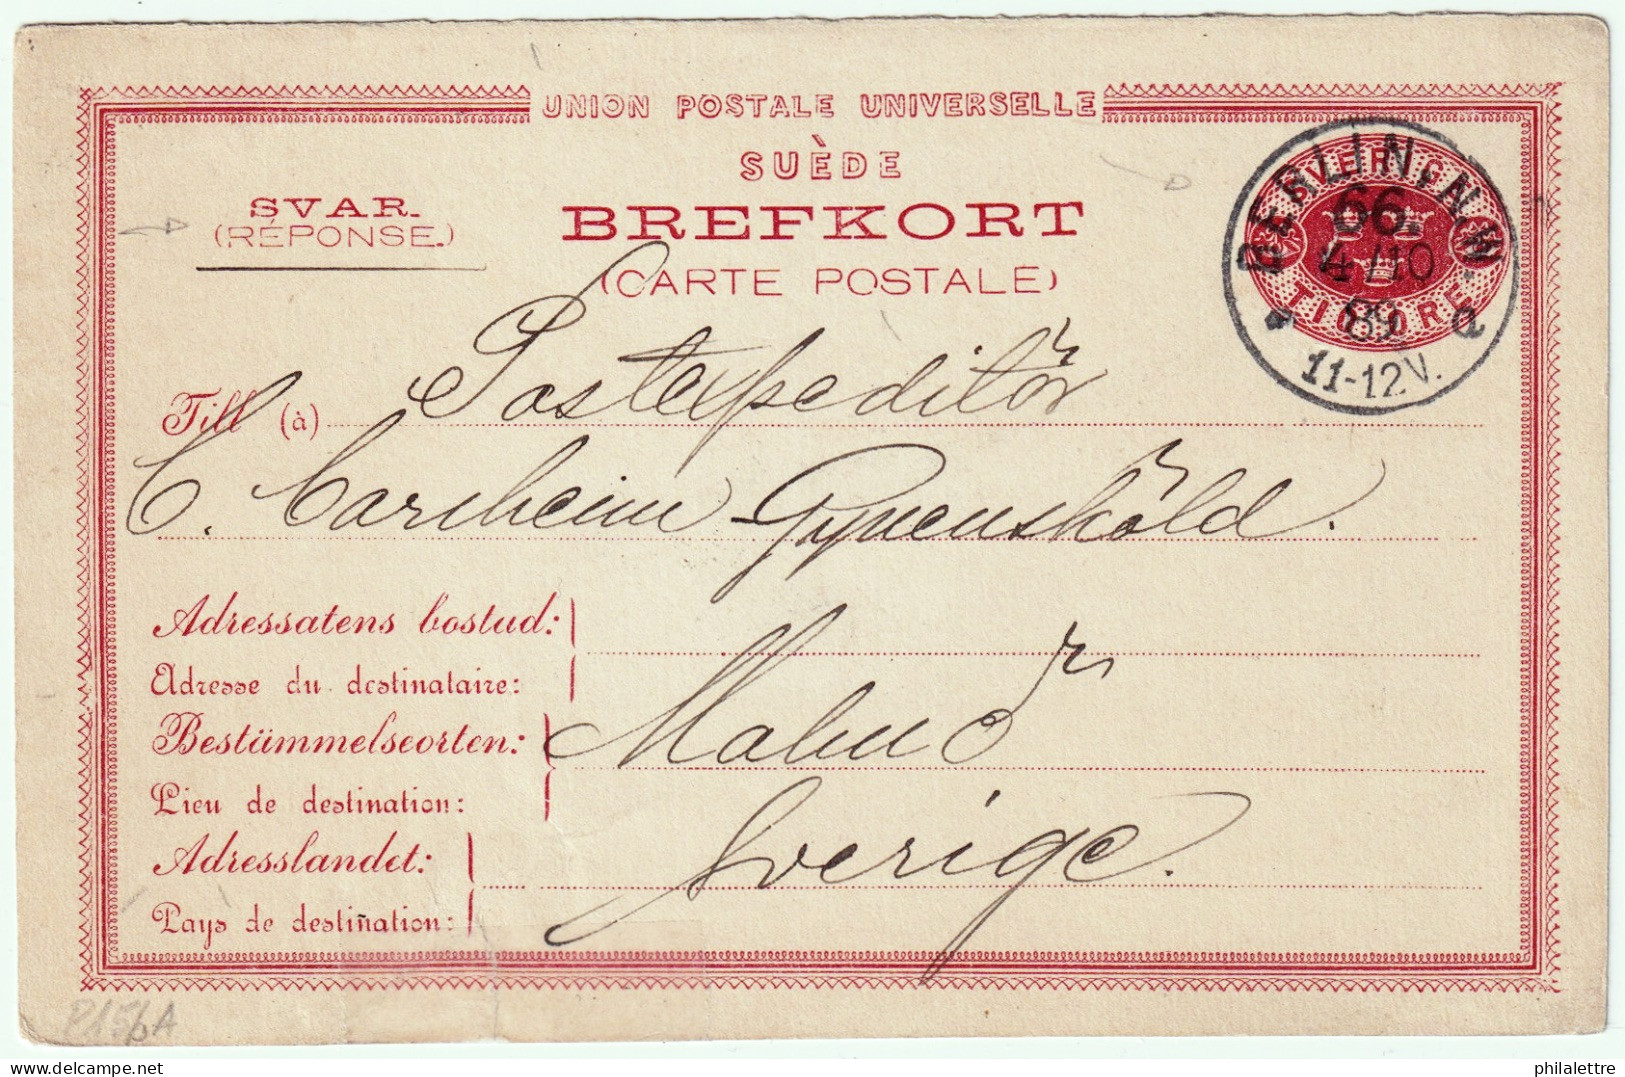 UNION POSTALE UNIVERSELLE
SUÈDE
SVAR.
(RÉPONSE.)
BREFKORT
(CARTE POSTALE)
SVERIGE
TIO ÖRE
BERLIN, N.W.
66.
4/10
89
11-12V.
a
Till (à) Postexpeditör
C. Carlheim Gyllensköld.
Adressatens bostad:
Adresse du destinataire:
Bestämmelseorten: Malmö
Lieu de destination:
Adresslandet: Sverige.
Pays de destination:
P15bA
philalettre